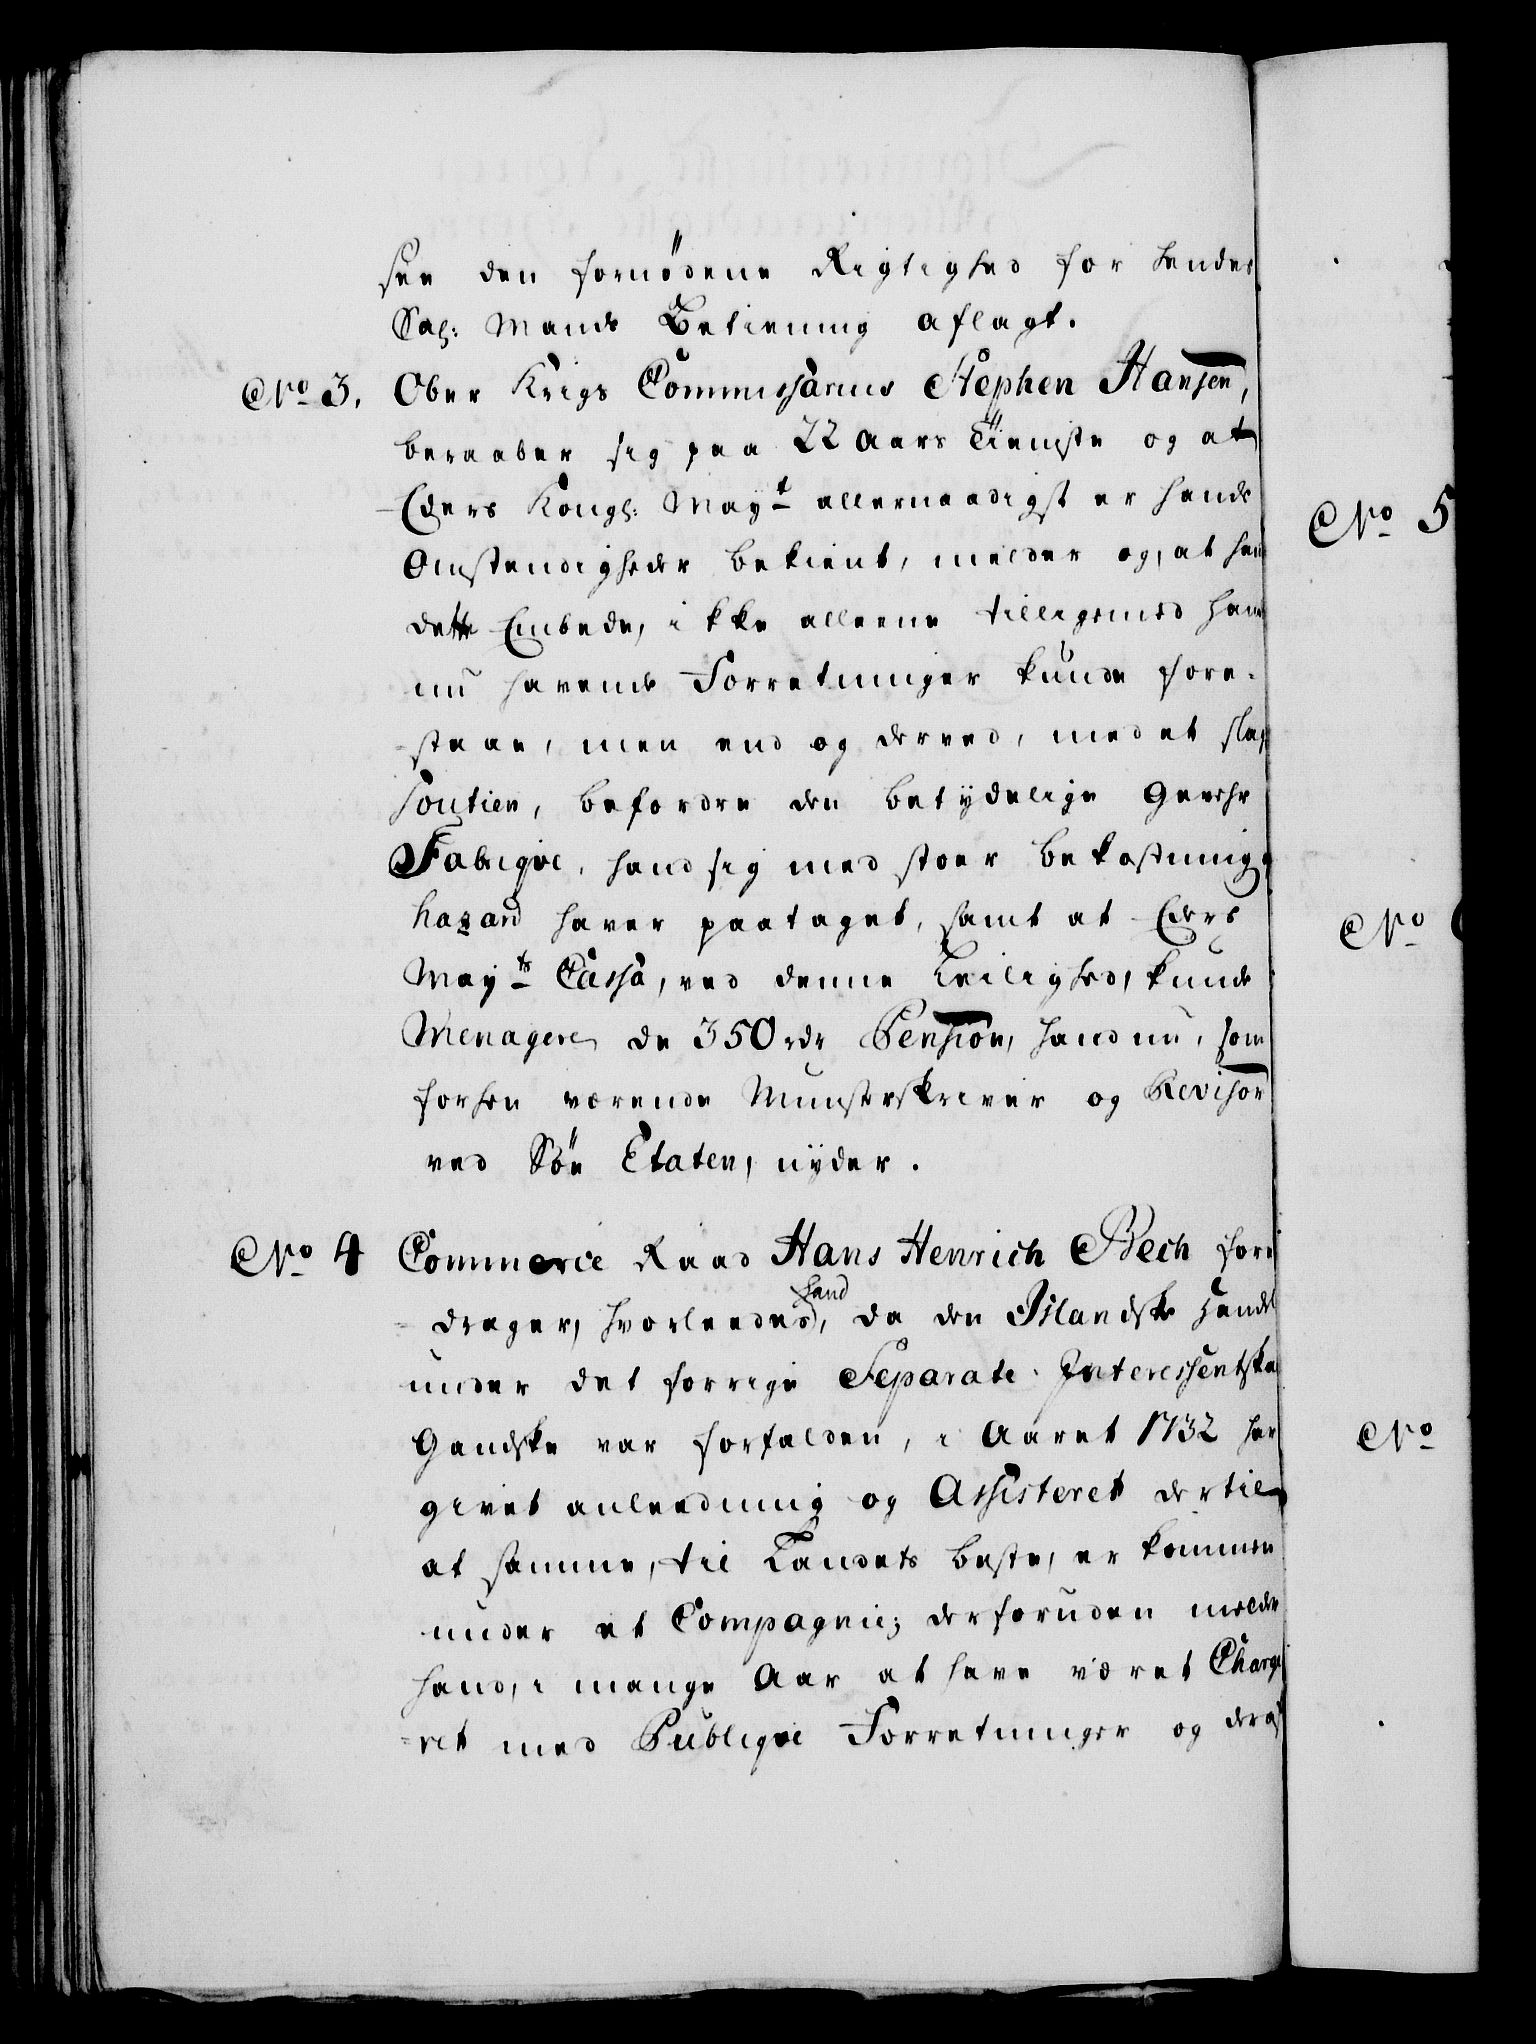 see den fornødene Rigtighed for hendes
Sal: Mands Betiening aflagt.
No 3. Ober Krigs Commissarius Stephen Hansen,
beraaber sig paa 22 Aars Tieniste og at
Eders Kongl: Mayt allernaadigst er hands
Omstendigheder bekient, melder og, at hand
dette Embede, ikke alleene tilligemed hans
nu havende Forretninger kunde fore-
=staae, men end og derved, med et slags
Soutien, befordre den betydelige Gevehr
Fabriqve, hand sig med stoer bekostning og
hazard haver paataget, samt at Eders
Mayts Cassa, ved denne Leilighed, kunde
Menagere de 350 rdr Pension, hand nu, som
forhen værende Munsterskriver og Revisor
ved Søe Etaten, nyder.
No 4 Commerce Raad Hans Henrich Bech fore
=drager, hvorleedes hand, da den Islandske Handel
under det forrige Separate Interessentskab
Gandske var forfalden, i Aaret 1732 har
givet anleedning og Assisteret dertil
at samme, til Landets beste, er kommen
under et Compagnie; derforuden melder
hand, i mange Aar at have været Charge
=ret med Publiqve Forretninger og deraf
No 5
No
No